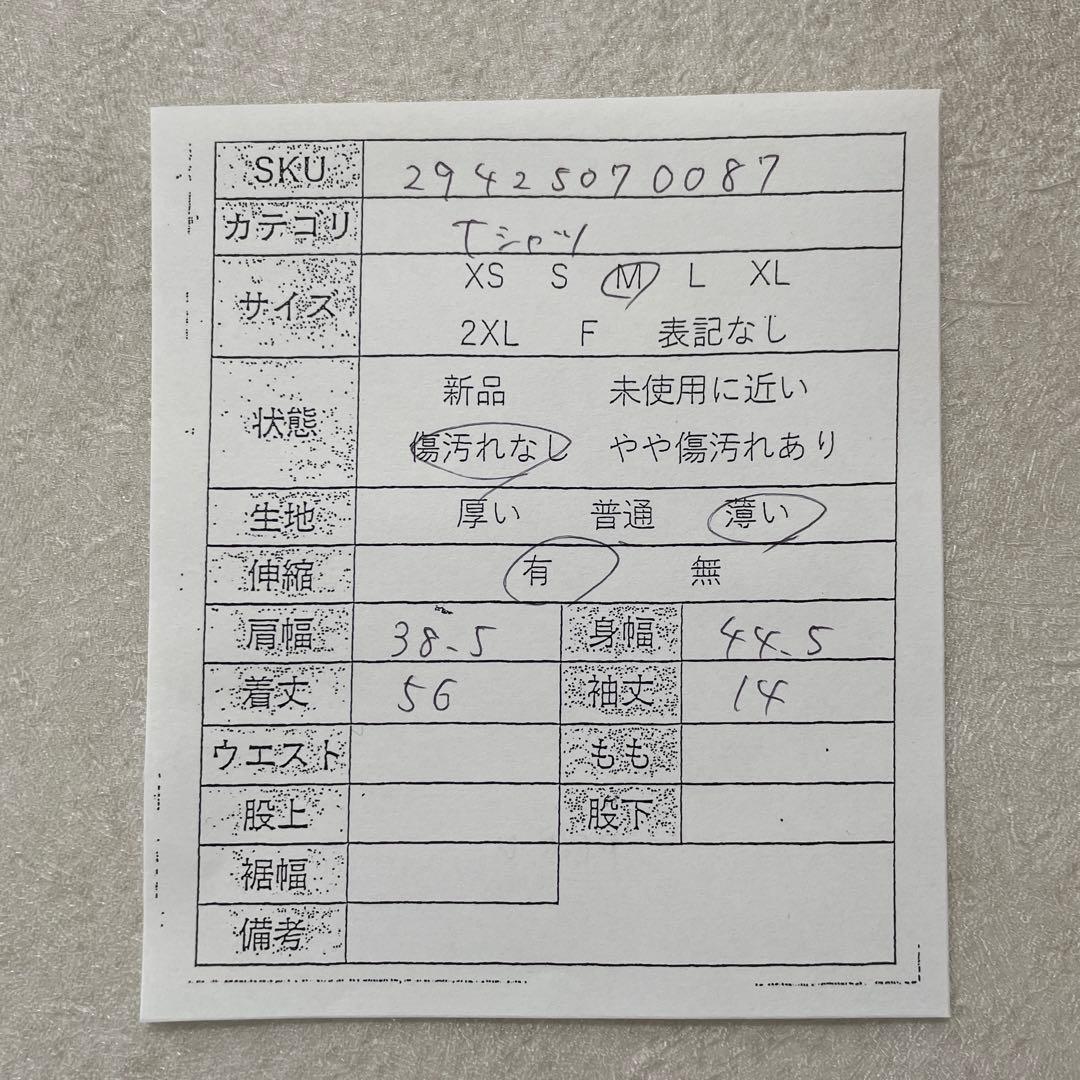 SKU 29425070087
カテゴリ Tシャツ
サイズ XS S M L XL
2XL F 表記なし
状態 新品 未使用に近い
傷汚れなし やや傷汚れあり
生地 厚い 普通 薄い
伸縮 有 無
肩幅 38.5 身幅 44.5
着丈 56 袖丈 14
ウエスト もも
股上 股下
裾幅
備考